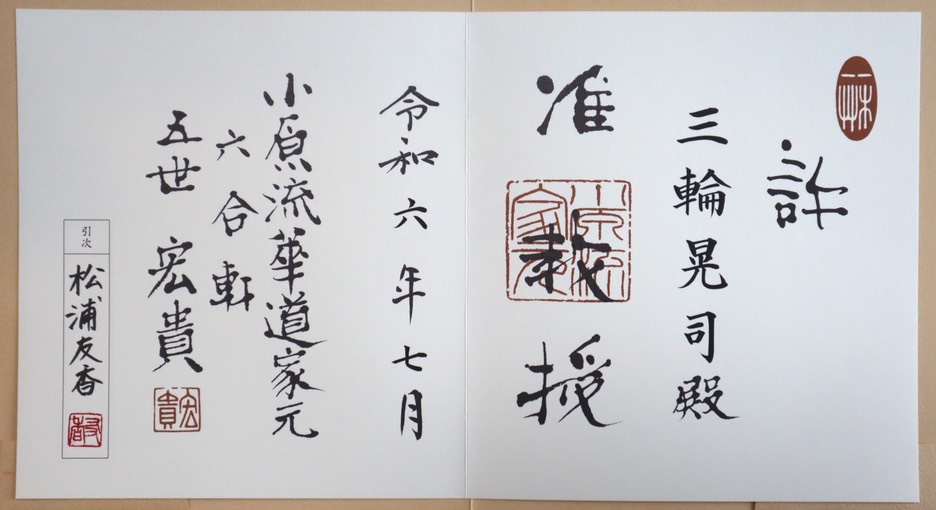 許
三輪晃司殿
准教授
令和六年七月
小原流華道家元
六合軒
五世 宏貴
宏貴
引次
松浦友香